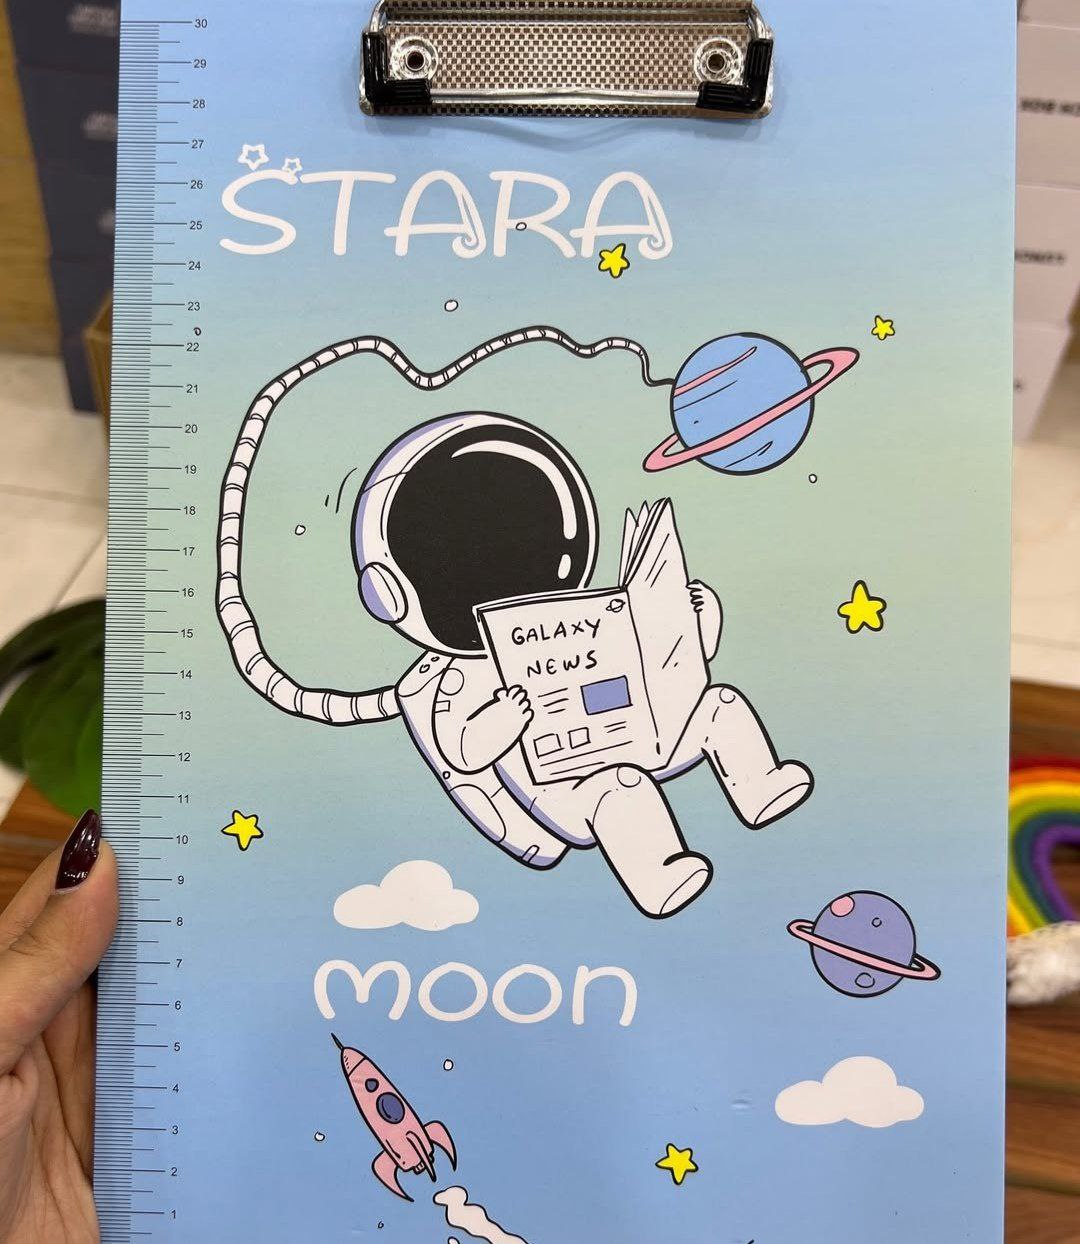 30
29
28
27
26
25
24
23
22
21
20
19
18
17
16
15
14
13
12
11
10
9
8
7
6
5
4
3
2
1
STARA
GALAXY
NEWS
moon